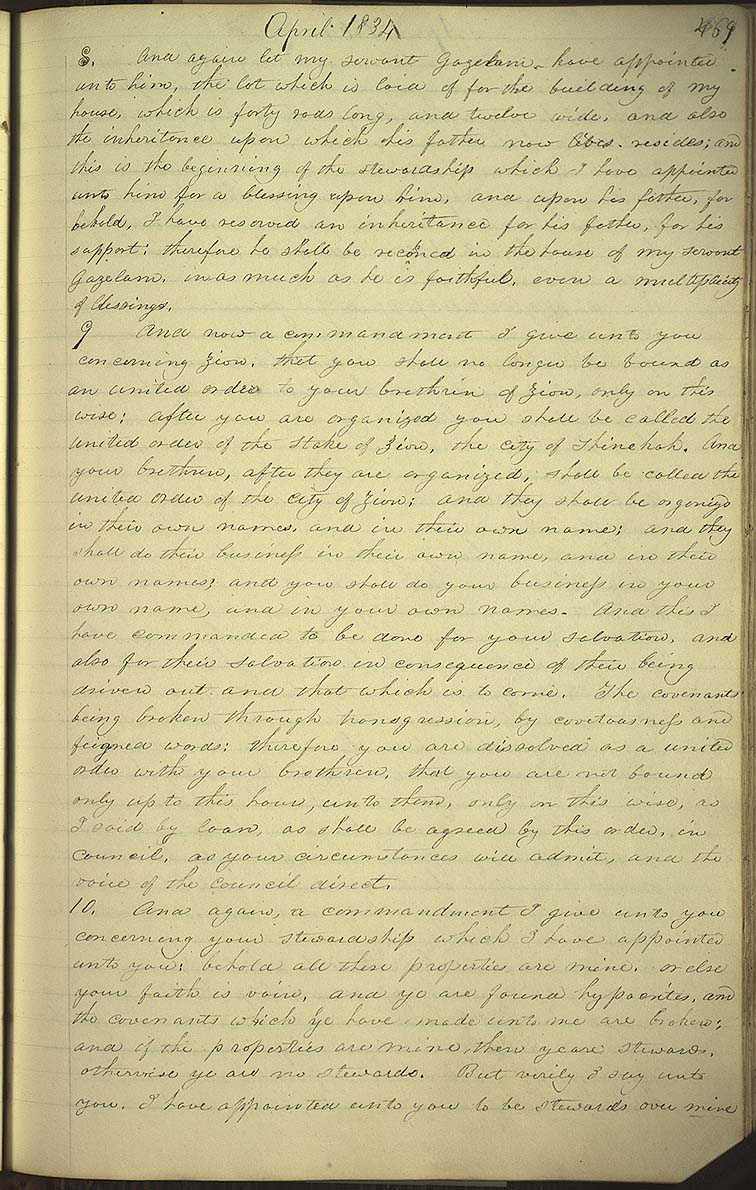 April 1834
469
8. And again let my servant Gazelam have appointed
unto him, the lot which is laid of for the building of my
house, which is forty rods long, and twelve wide, and also
the inheritance upon which his father now resides; and
this is the beginning of the stewardship which I have appointed
unto him for a blessing upon him, and upon his father, for
behold, I have reserved an inheritance for his father, for his
support; therefore he shall be reconed in the house of my servant
Gazelam. in as much as he is faithful, even a multiplicity
of blessings.
9 And now a commandment I give unto you
concerning Zion, that you shall no longer be bound as
an united order to your brethren of Zion, only on this
wise; after you are organized you shall be called the
united order of the stake of Zion, the city of Shinehah. And
your brethren, after they are organized, shall be called the
united order of the city of Zion; and they shall be organized
in their own names, and in their own name; and they
shall do their business in their own name, and in their
own names; and you shall do your business in your
own name, and in your own names. And this I
have commanded to be done for your salvation, and
also for their salvation in consequence of their being
driven out and that which is to come. The covenants
being broken through transgression, by covetousness and
feigned words; therefore you are dissolved as a united
order with your brethren, that you are not bound
only up to this hour, unto them, only on this wise, as
I said by loan, as shall be agreed by this order, in
council, as your circumstances will admit, and the
voice of the council direct.
10. And again, a commandment I give unto you
concerning your stewardship which I have appointed
unto you; behold all these properties are mine, or else
your faith is vain, and ye are found hypocrites, and
the covenants which ye have made unto me are broken;
and if the properties are mine, then ye are stewards,
otherwise ye are no stewards. But verily I say unto
you, I have appointed unto you to be stewards over mine